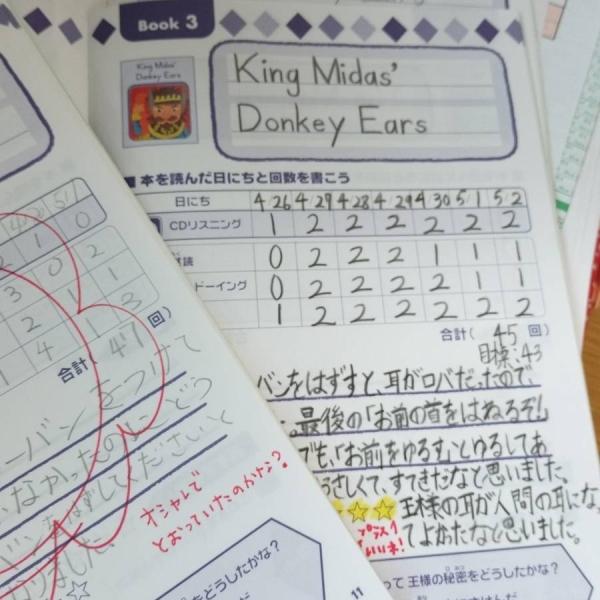 Book 3
King Midas'
Donkey Ears
King Midas'
Donkey Ears
■ 本を読んだ日にちと回数を書こう
日にち 4/26 4/27 4/28 4/29 4/30 5/1 5/2
CDリスニング 1 2 2 2 2 2 2
読 0 2 2 2 1 1 1
ドーイング 0 2 2 2 2 1 1
1 2 2 2 2 2 2
合計( 45 回)
目標:43
バンをはずすと、耳がロバだったので
。最後の「お前の首をはねるぞ!」
でも、「お前をゆるす」とゆるしてあ
さしくて、すてきだなと思いました。
☆☆ 王様の耳が人間の耳にな
てよかたなと思いました。
プラス1
いいね!
って王様の秘密をどうしたかな?
11
5/1
2 1 0
3 0 2
2 1 1
1 4 1 3
合計( 47 回)
ーバンをつけて
なかったのに、どう
はずしてくださいと
りました。
☆
オシャレで
とおっていたのかな?
をどうしたかな?